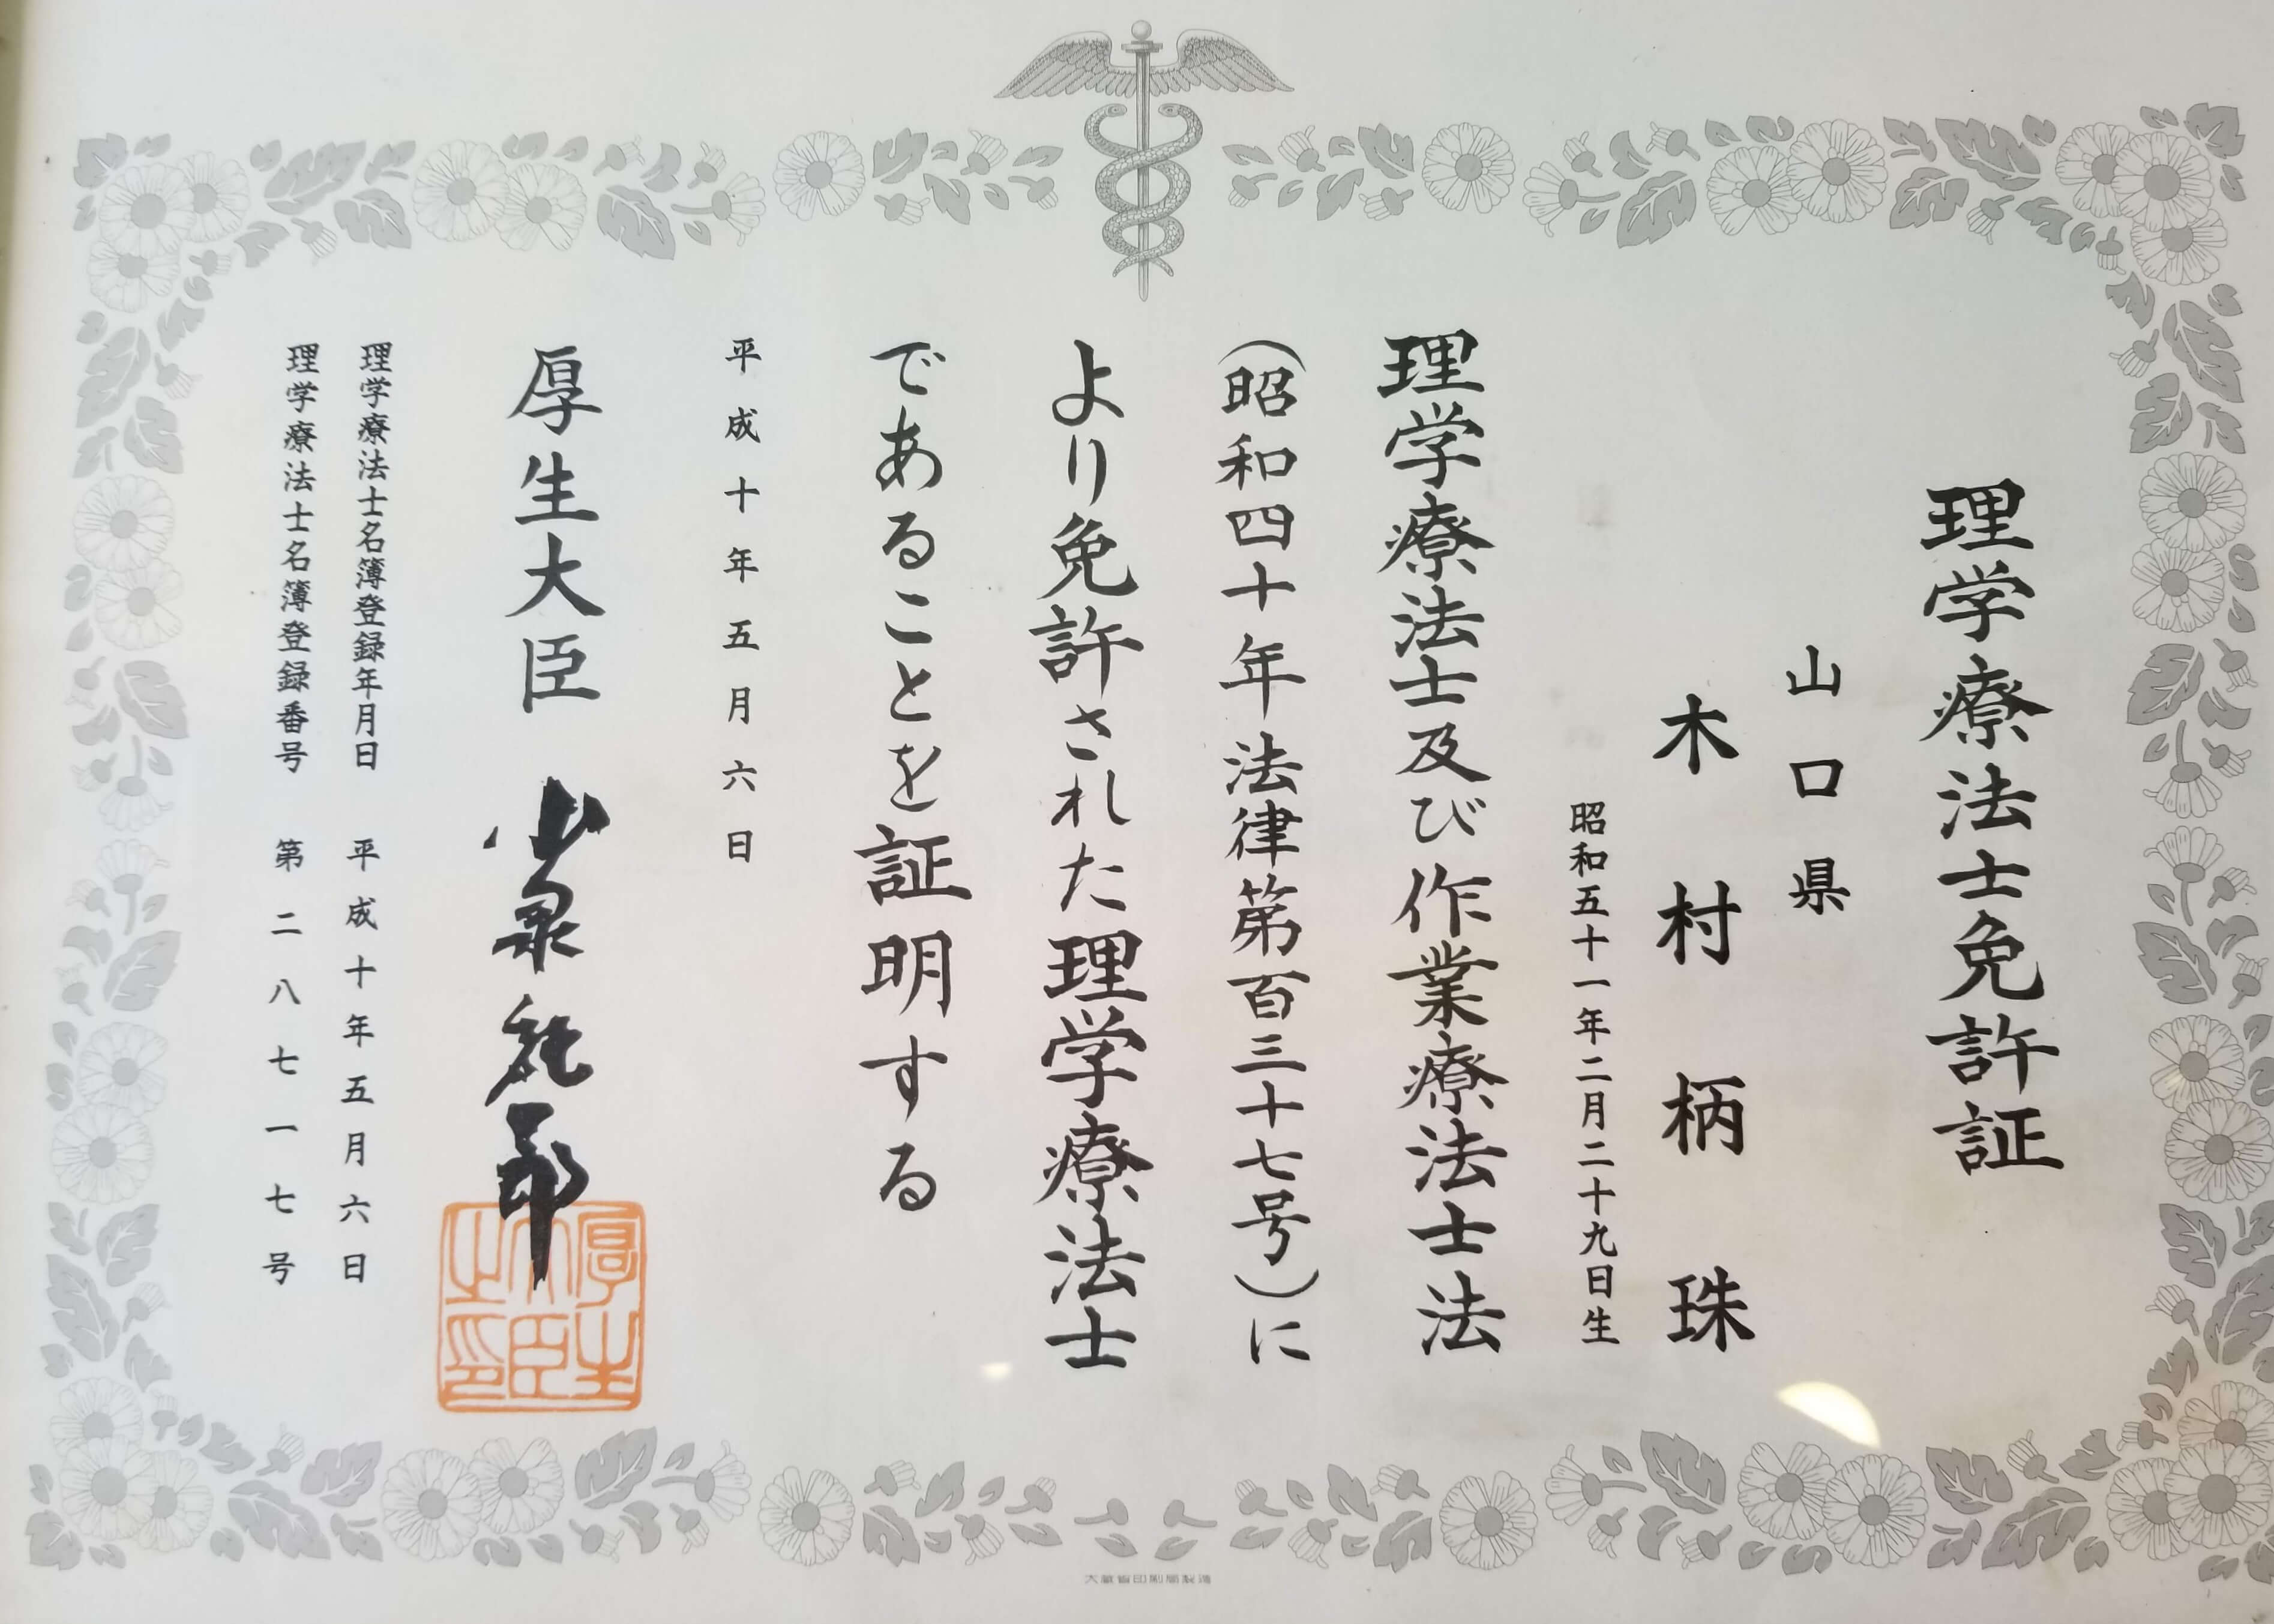 理学療法士免許証
山口県
木村柄珠
昭和五十一年二月二十九日生
理学療法士及び作業療法士法
（昭和四十年法律第百三十七号）に
より免許された理学療法士
であることを証明する
平成十年五月六日
厚生大臣 小泉純一郎
厚生大臣之印
理学療法士名簿登録年月日 平成十年五月六日
理学療法士名簿登録番号 第二八七一七号
大蔵省印刷局製造